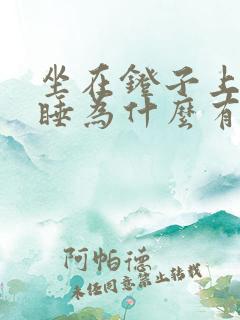 坐在鐙子上
睡為什麼有
阿帕德
未经同意禁止转载